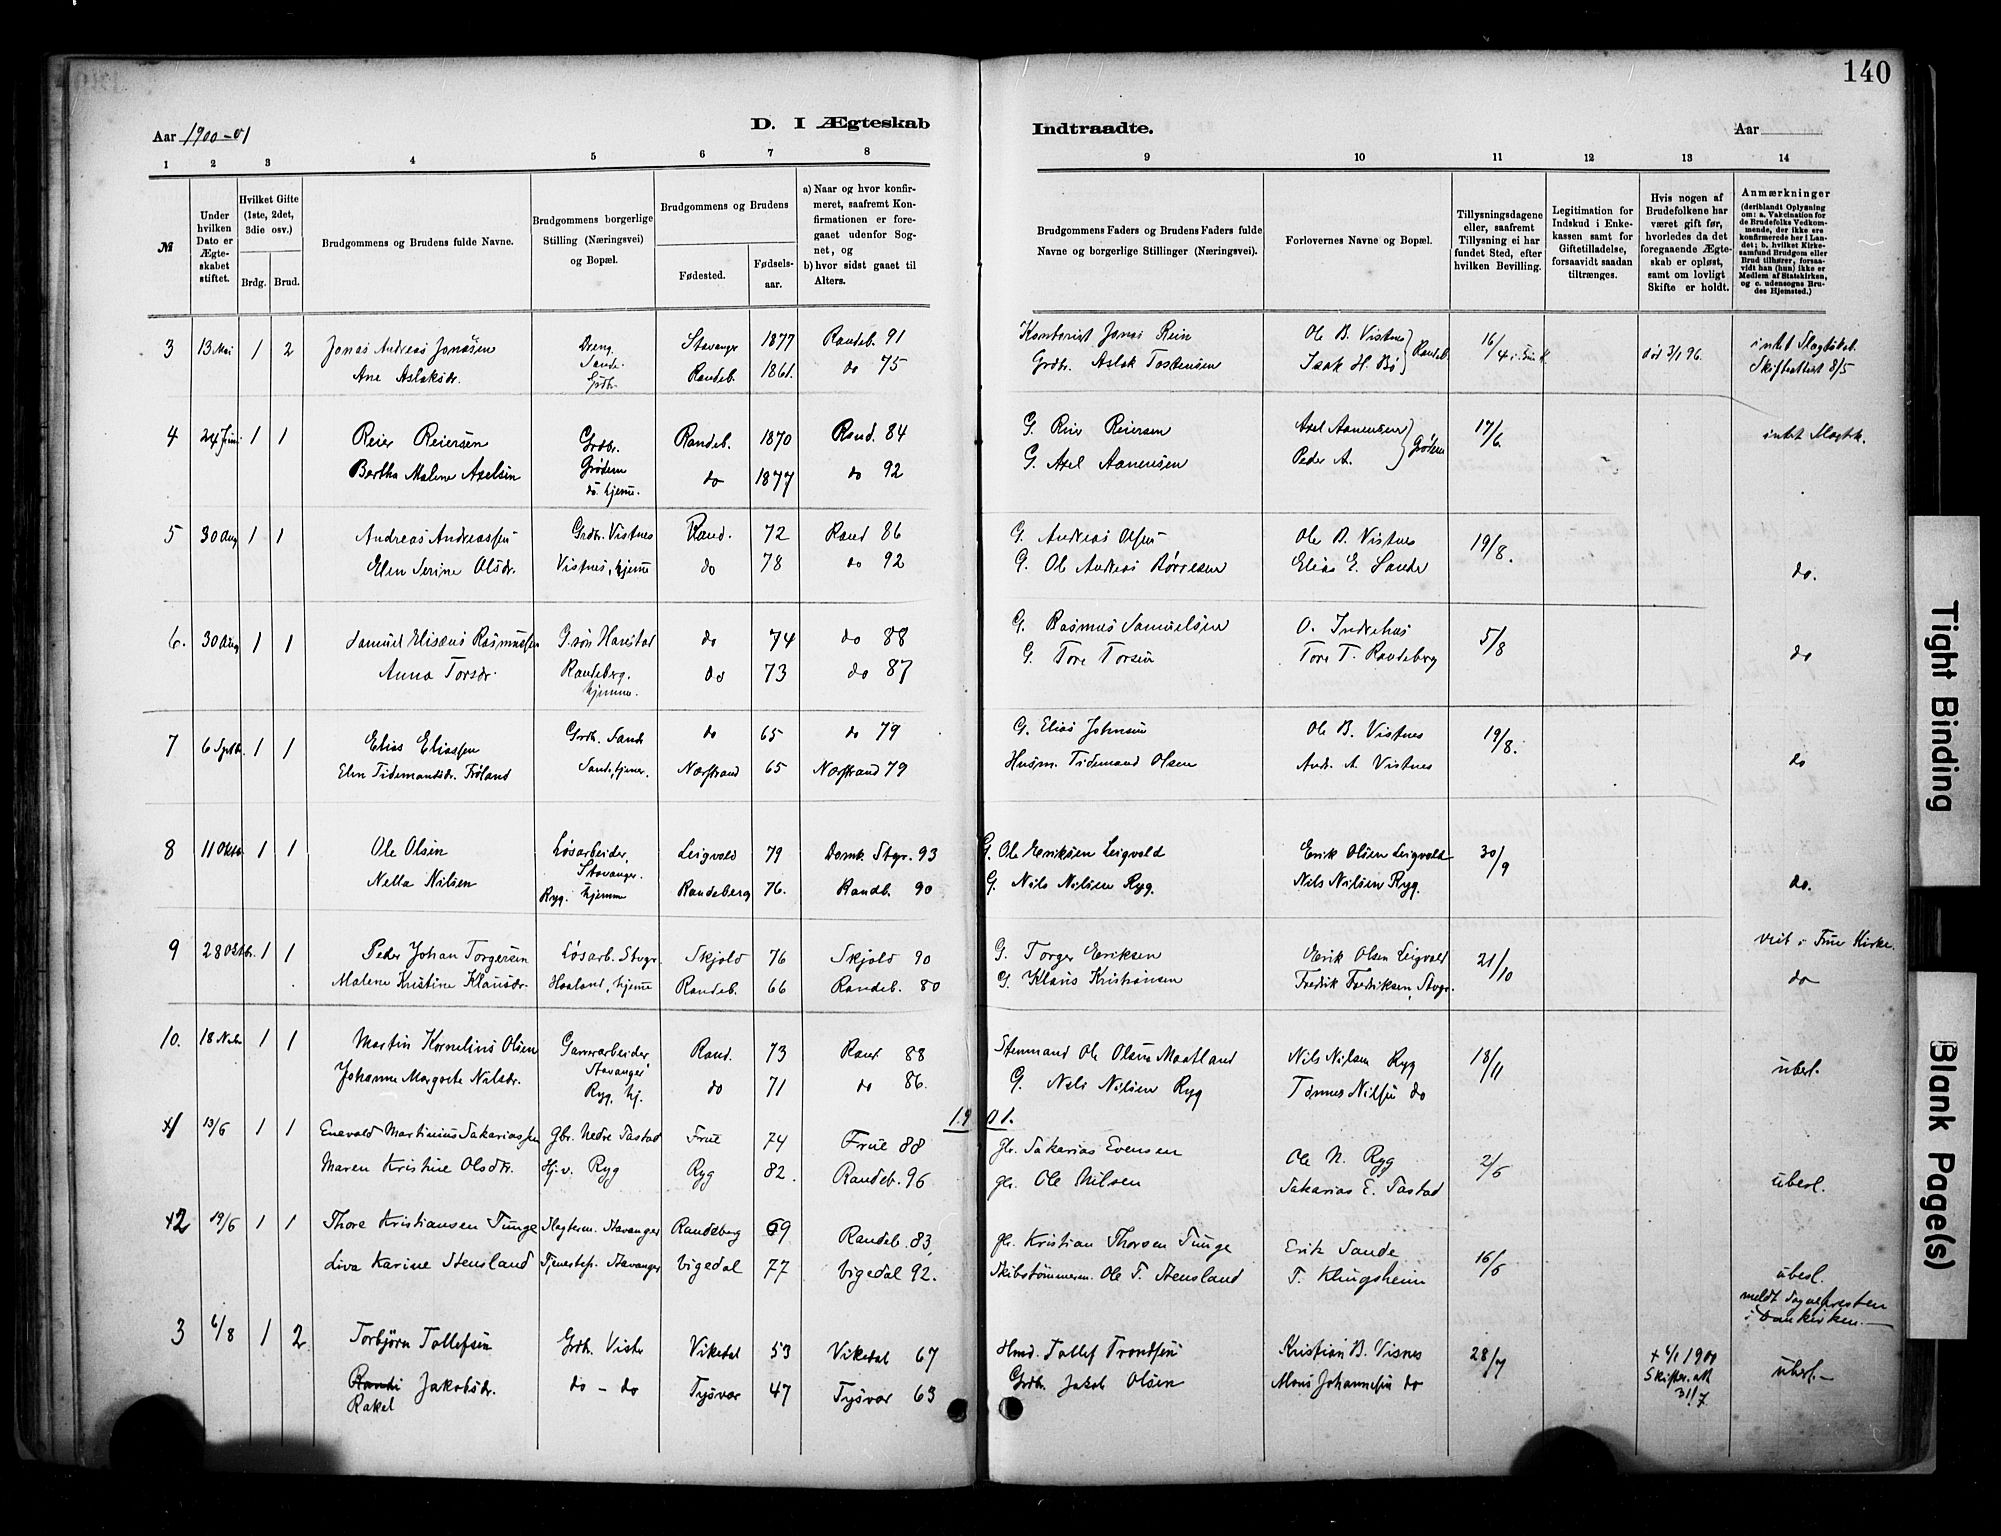 140
Aar 1900-01
D. I Ægteskab
Indtraadte.
Aar
1 2 3 4 5 6 7 8
9 10 11 12 13 14
№
Under hvilken Dato er Ægteskabet stiftet.
Hvilket Gifte (1ste, 2det, 3die osv.)
Brdg. Brud.
Brudgommens og Brudens fulde Navne.
Brudgommens borgerlige Stilling (Næringsvei) og Bopæl.
Brudgommens og Brudens
Fødested.
Fødselsaar.
a) Naar og hvor konfirmeret, saafremt Konfirmationen er foregaaet udenfor Sognet, og
b) hvor sidst gaaet til Alters.
Brudgommens Faders og Brudens Faders fulde Navne og borgerlige Stillinger (Næringsvei).
Forlovernes Navne og Bopæl.
Tillysningsdagene eller, saafremt Tillysning ei har fundet Sted, efter hvilken Bevilling.
Legitimation for Indskud i Enkekassen samt for Giftetilladelse, forsaavidt saadan tiltrænges.
Hvis nogen af Brudefolkene har været gift før, hvorledes da det foregaaende Ægteskab er opløst, samt om lovligt Skifte er holdt.
Anmærkninger
(deriblandt Oplysning om: a. Vakcination for de Brudefolks Vedkommende, der ikke ere konfirmerede her i Landet; b. hvilket Kirkesamfund Brudgom eller Brud tilhører, forsaavidt han (hun) ikke er Medlem af Statskirken, og c. udensogns Brudes Hjemsted.)
3 13 Mai 1 2 Jonas Andreas Jonasen Dreng Sande Stavanger 1877 Randeb. 91 Kontorist Jonas Rein Ole B. Vistnes 16/4 død 3/1 96. intet Slægtskab.
Ane Aslaksdr. Grdbr. Randeb. 1861. do 75 Grdbr. Aslak Tostensen Isak H. Bø Randeb. Skifteattest 8/5
4 24 Juni 1 1 Reier Reiersen Grdbr. Grødem Randeb. 1870 Rand. 84 G. Reier Reiersen Axel Aanensen 17/6 intet Slægtsk.
Bertha Malene Axelsen do. hjemme. do 1877 do 92 G. Axel Aanensen Peder A. Grødem
5 30 Aug 1 1 Andreas Andreassen Grdbr. Vistnes Rand. 72 Rand 86 G. Andreas Olsen Ole B. Vistnes 19/8.
Elen Serine Olsdr. Vistnes, hjemme do 78 do 92 G. Ole Andreas Børresen Elias E. Sande do.
6. 30 Aug 1 1 Samuel Elisæus Rasmussen G.søn Harestad do 74 do 88 G. Rasmus Samuelsen O. Indrehus 5/8
Anna Torsdr. Randeberg. hjemme. do 73 do 87 G. Tore Torsen Tore T. Randeberg do
7 6 Septbr. 1 1 Elias Eliassen Grdb. Sande do 65 do 79 G. Elias Johnsen Ole B. Vistnes 19/8.
Elen Tidemandsdr. Frøland Sande, tjener. Nærstrand 65 Nærstrand 79 Husm. Tidemand Olsen Andr. A. Vistnes do
8 11 Oktbr. 1 1 Ole Olsen Løsarbeider, Stavanger. Leigvold 79 Domk. Stvgr. 93 G. Ole Eriksen Leigvold Erik Olsen Leigvold 30/9
Nella Nilsen Ryg. hjemme Randeberg 76. Randb. 90 G. Nils Nilsen Ryg. Nils Nilsen Ryg. do.
9 28 Oktbr. 1 1 Peder Johan Torgersen Løsarb. Stvgr. Skjold 76 Skjold 90 G. Torger Eriksen Erik Olsen Leigvold 21/10 viet i Frue Kirke.
Malene Kristine Klausdr. Haaland, hjemme Randeb. 66 Randeb. 80 G. Klaus Kristiansen Fredrik Fredriksen, Stvgr. do
10. 18 Novbr 1 1 Martin Kornelius Olsen Garverarbeider Stavanger Rand. 73 Rand 88 Stenmand Ole Olsen Maatland Nils Nilsen Ryg 18/11
Johanne Margrete Nilsdr. Ryg, hj. do 71 do 86. G. Nils Nilsen Ryg Tønnes Nilsen do ubesl.
1901.
+1 13/6 1 1 Enevald Martinius Sakariassen Gbr. Nedre Tastad Frue 74 Frue 88 gbr. Sakarias Evensen Ole N. Ryg 2/6
Maren Kristine Olsdtr. Hj. v. Ryg Ryg 82. Randeb. 96 gbr. Ole Nilsen Sakarias E. Tastad ubesl.
+2 19/6 1 1 Thore Kristiansen Tunge Slagterm. Stavanger Randeberg 69 Randeb. 83, gbr. Kristian Thorsen Tunge Erik Sande 16/6
Liva Karine Stensland Tjenestep. Stavanger Vigedal 77 Vigedal 92. Skibstømmerm. Ole T. Stensland T. Klungsheim ubesl.
meldt Sognepresten i Domkirken.
3 6/8 1 2 Torbjørn Tollefsen Grdb. Viste Vikedal 53 Vikedal 67 Husmd. Tollef Trondsen Kristian B. Visnes 28/7 + 6/1 1900 ubesl.
Randi Jakobsdr. do - do Tysvær 47 Tysvær 63 Grdb. Jakob Olsen Mons Johannesen do Skifter. att 31/7
Rakel
Tight Binding
Blank Page(s)